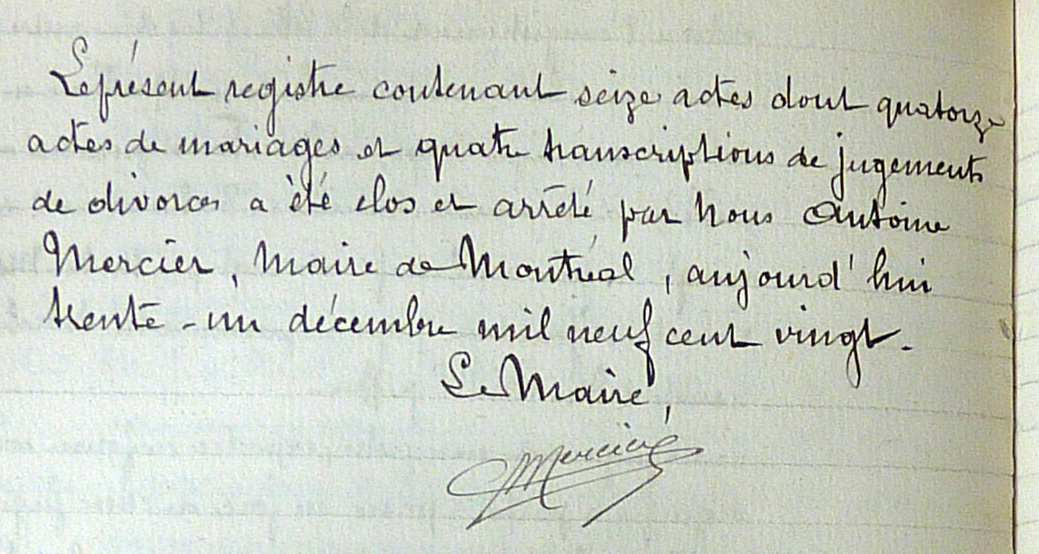 Le présent registre contenant seize actes dont quatorze
actes de mariages et quatre transcriptions de jugements
de divorces a été clos et arrêté par nous Antoine
Mercier, Maire de Montréal, aujourd'hui
trente-un décembre mil neuf cent vingt.
Le Maire,
Mercier